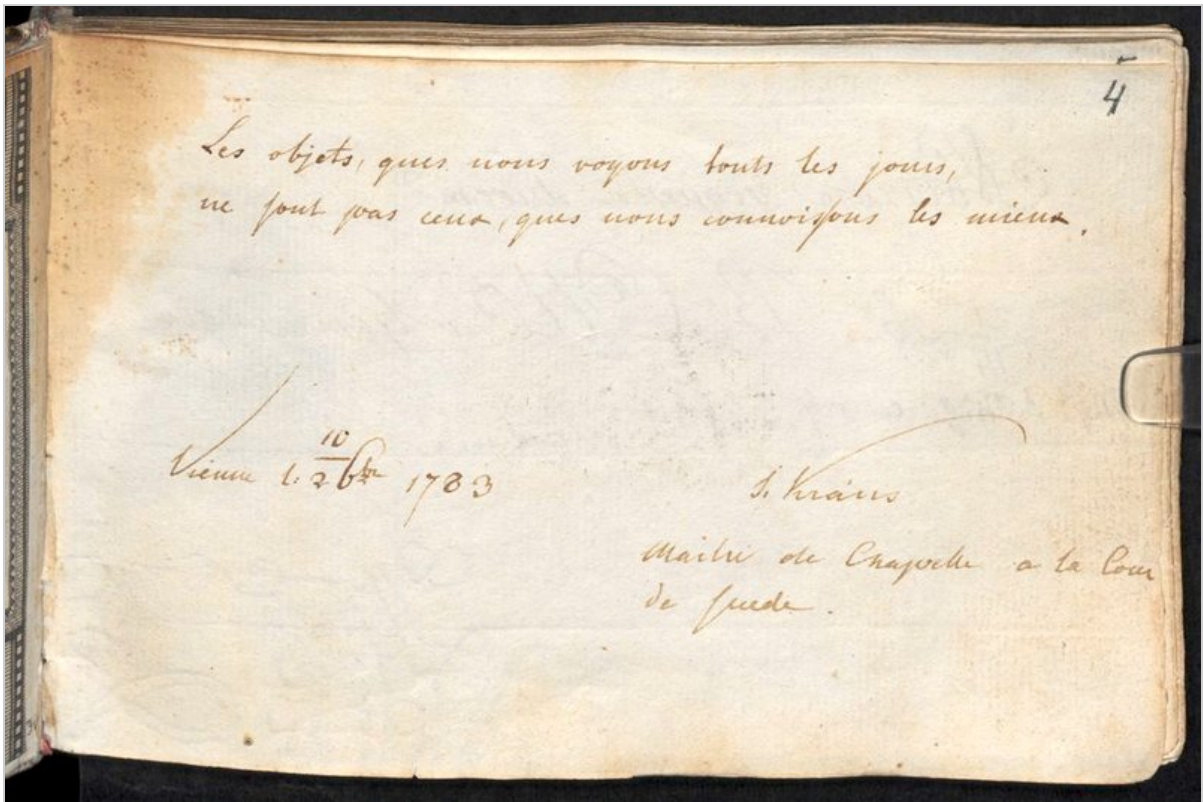 4
Les objets, ques nous voyons touts les jours,
ne sont pas ceux, ques nous connoissons les mieux.
Vienne l. 26br 1783
10
J. Kraus
Maitre de Chapelle a la Cour
de Suede.